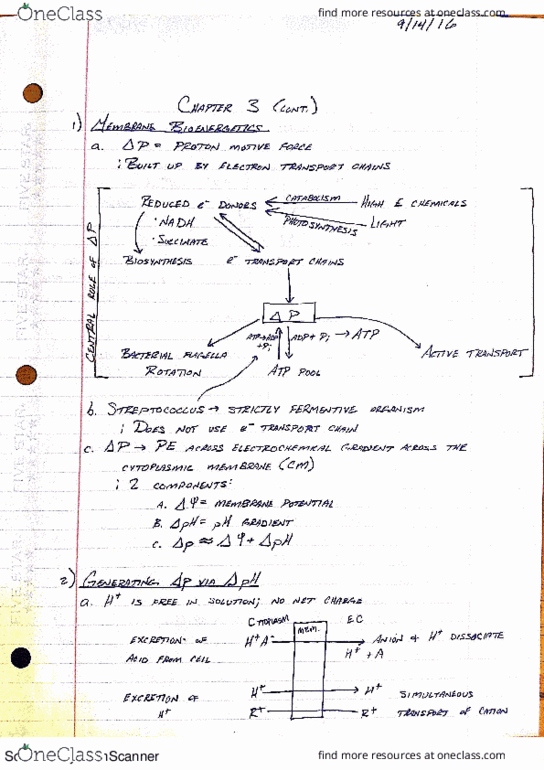 OneClass
find more resources at oneclass.com
9/14/16
CHAPTER 3 (CONT.)
1) MEMBRANE BIOENERGETICS
a. ΔP = PROTON MOTIVE FORCE
i BUILT UP BY ELECTRON TRANSPORT CHAINS
CENTRAL ROLE OF ΔP
REDUCED e⁻ DONORS CATABOLISM HIGH E CHEMICALS
· NADH PHOTOSYNTHESIS LIGHT
· SUCCINATE
BIOSYNTHESIS e⁻ TRANSPORT CHAINS
ΔP
ATP→ADP +Pi ADP + Pi → ATP
BACTERIAL FLAGELLA ROTATION
ATP POOL
ACTIVE TRANSPORT
b. STREPTOCOCCUS → STRICTLY FERMENTIVE ORGANISM
i DOES NOT USE e⁻ TRANSPORT CHAIN
c. ΔP → PE ACROSS ELECTROCHEMICAL GRADIENT ACROSS THE
CYTOPLASMIC MEMBRANE (CM)
i 2 COMPONENTS:
A. ΔΨ = MEMBRANE POTENTIAL
B. ΔpH = pH GRADIENT
C. Δp ≈ ΔΨ + ΔpH
2) GENERATING Δp VIA ΔpH
a. H⁺ IS FREE IN SOLUTION; NO NET CHARGE
CYTOPLASM MEM. EC
EXCRETION OF H⁺A⁻ ANION & H⁺ DISSOCIATE
ACID FROM CELL H⁺ + A
EXCRETION OF H⁺ H⁺ SIMULTANEOUS
H⁺ R⁺ R⁺ TRANSPORT OF CATION
OneClass
Scanner
find more resources at oneclass.com